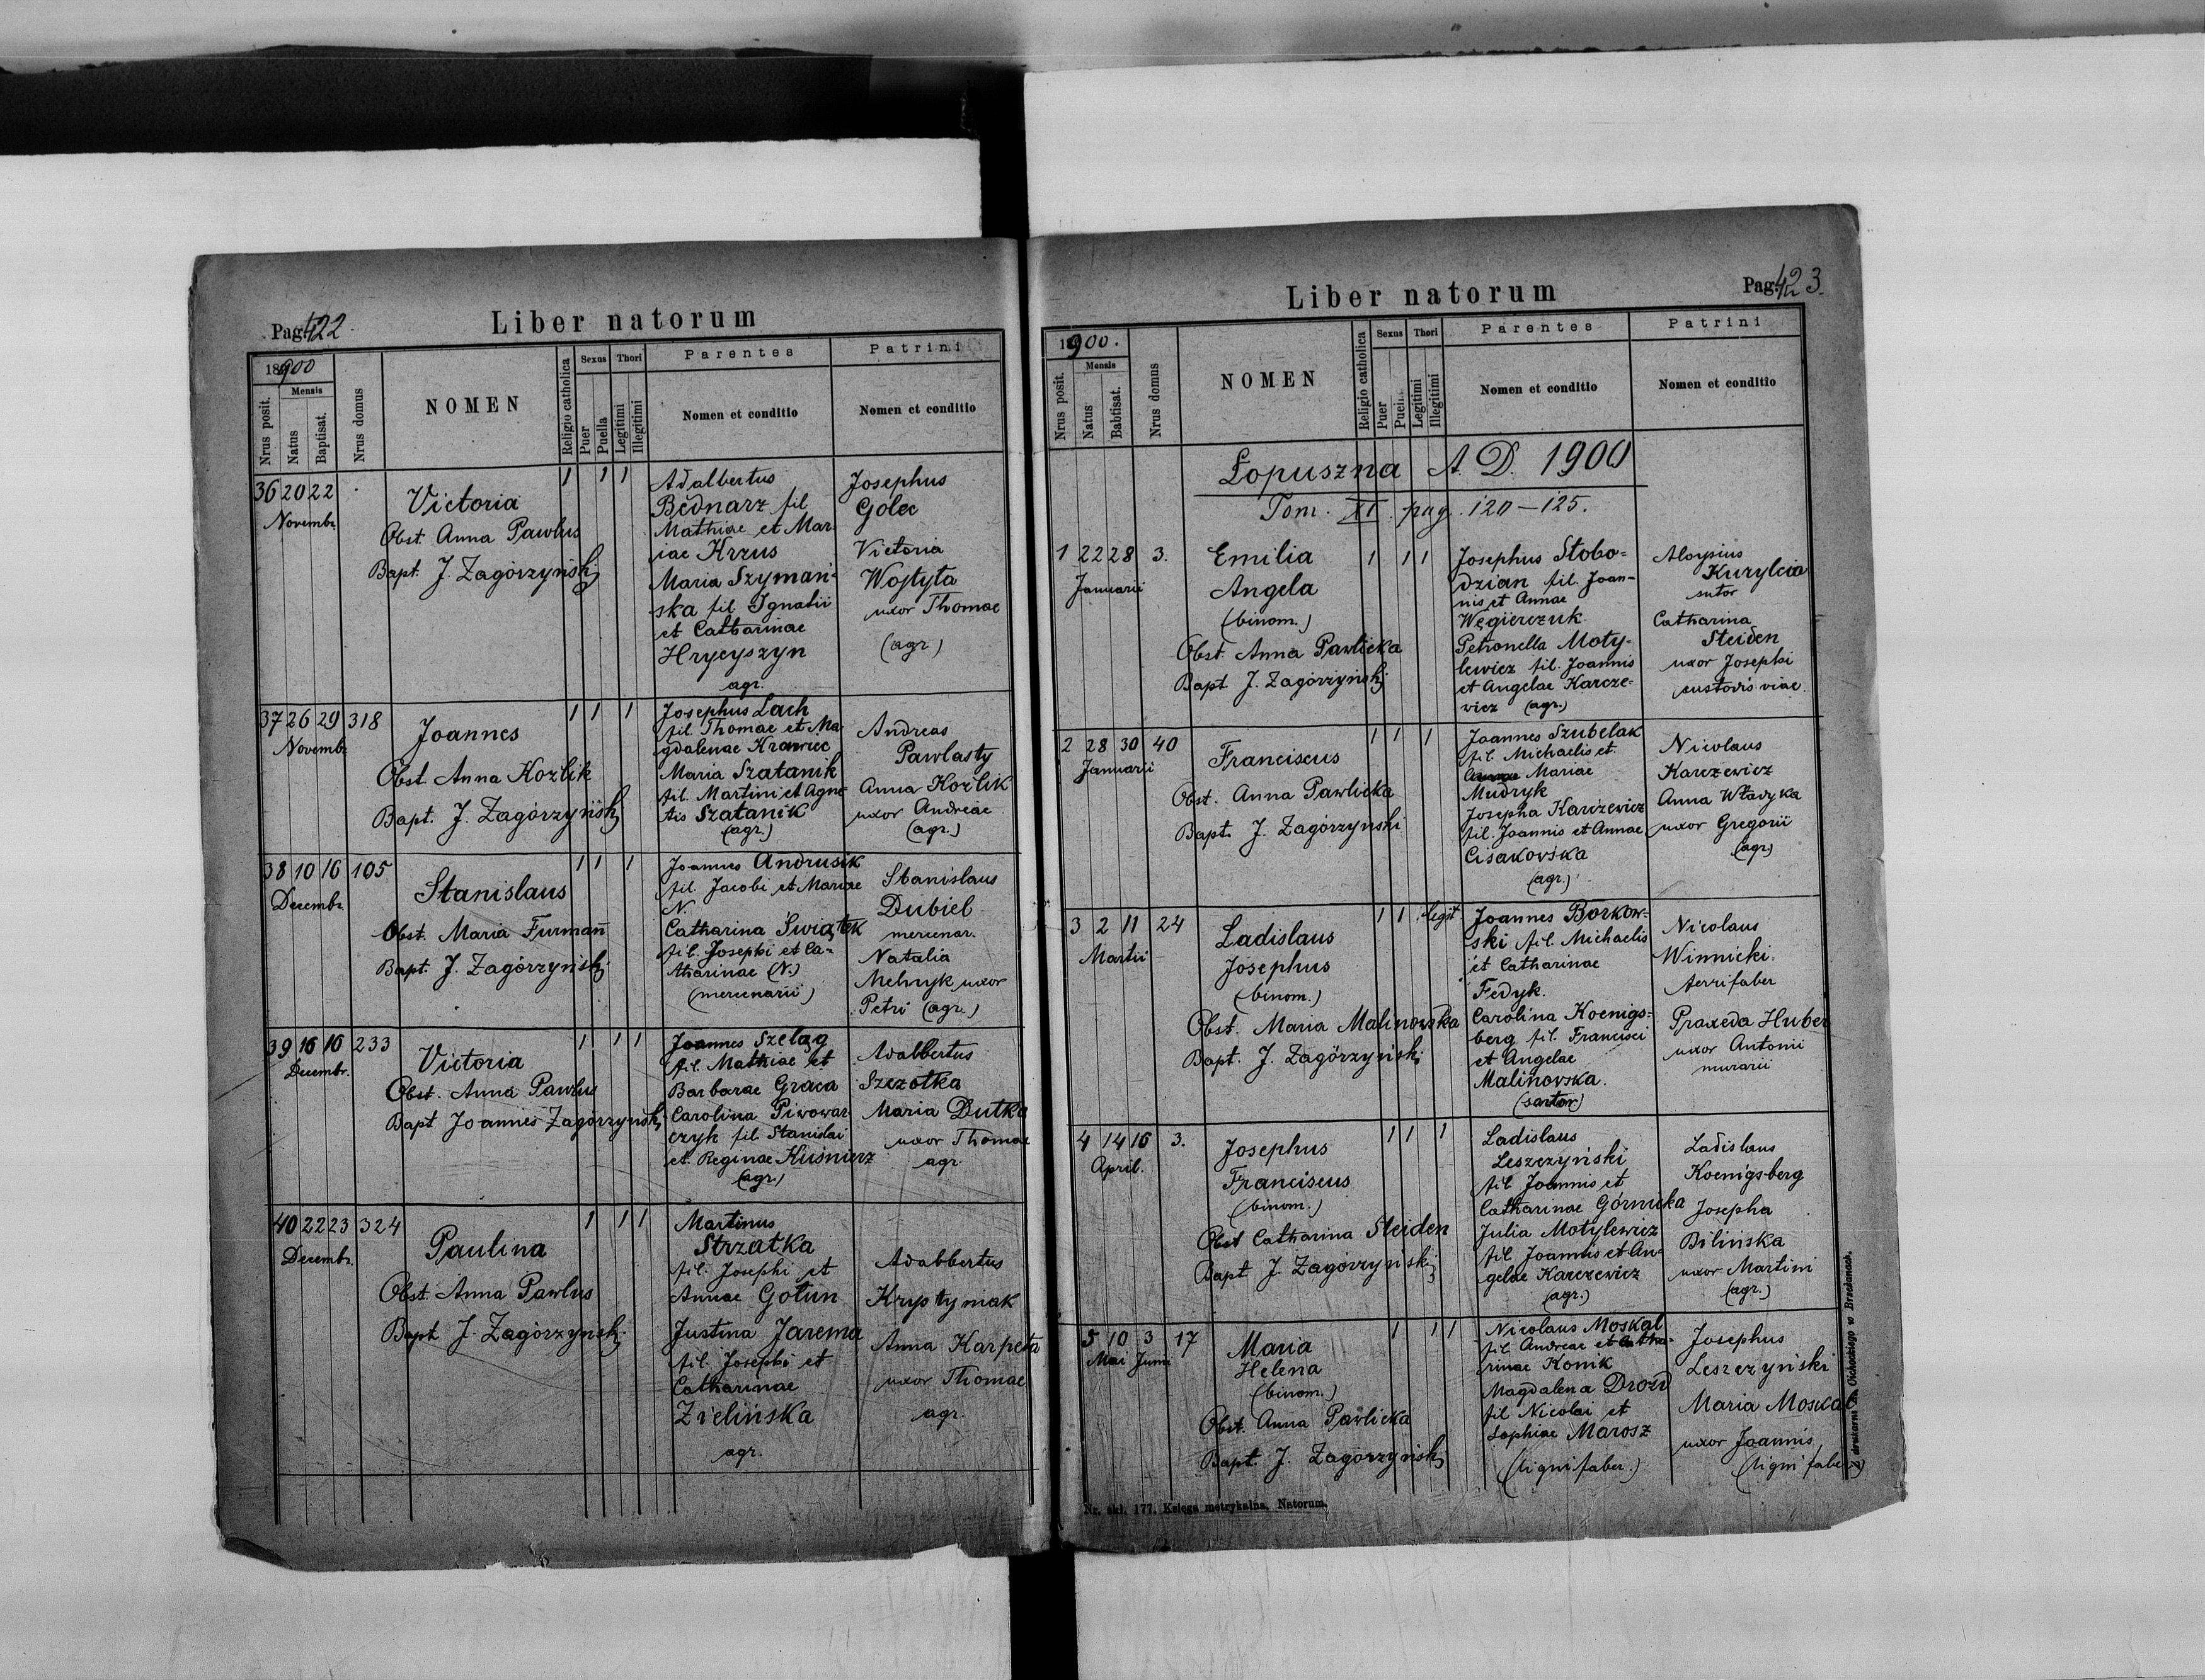 Pag. 422.
Liber natorum
1900
Nrus posit.
Mensis
Natus
Baptisat.
Nrus domus
NOMEN
Religio catholica
Sexus
Puer
Puella
Thori
Legitimi
Illegitimi
Parentes
Nomen et conditio
Patrini
Nomen et conditio
36 20 22
Novembr.
Victoria
Obst. Anna Pawlus
Bapt. J. Zagórzyński
1 1 1
Adalbertus
Bednarz fil
Mathiae et Mar
iae Krzus
Maria Szymań-
ska fil Ignatii
et Catharinae
Hrycyszyn
agr.
Josephus
Golec
Victoria
Wojtyła
uxor Thomae
(agr)
37 26 29 318
Novembr.
Joannes
Obst. Anna Koźlik
Bapt. J. Zagórzyński
1 1 1
Josephus Lach
fil. Thomae et Ma-
gdalenae Krawiec
Maria Szatanik
fil. Martini et Agne-
tis Szatanik
(agr.)
Andreas
Pawlasty
Anna Koźlik
uxor Andreae
(agr.)
38 10 16 105
Decembr.
Stanislaus
Obst. Maria Furmann
Bapt. J. Zagórzyński
1 1 1
Joannes Andrusik
fil. Jacobi et Mariae
N.
Catharina Świątek
fil. Josephi et Ca-
tharinae (N.)
(mercenarii)
Stanislaus
Dubiel
mercenar.
Natalia
Melnyk uxor
Petri (agr.)
39 16 16 233
Decembr.
Victoria
Obst. Anna Pawlus
Bapt Joannes Zagórzyński
1 1 1
Joannes Szeląg
fil. Mathiae et
Barbarae Graca
Carolina Piwowar-
czyk fil Stanislai
et Reginae Kuśnierz
(agr.)
Adalbertus
Szczotka
Maria Dutka
uxor Thomae
agr.
40 22 23 324
Decembr.
Paulina
Obst. Anna Pawlus
Bapt J. Zagórzyński
1 1 1
Martinus
Strzałka
fil. Josephi et
Annae Gołun
Justina Jarema
fil. Josephi et
Catharinae
Zielińska
agr.
Adalbertus
Krystyniak
Anna Karpeta
uxor Thomae
agr.
Liber natorum
Pag. 423.
1900.
Nrus posit.
Mensis
Natus
Babtisat.
Nrus domus
NOMEN
Religio catholica
Sexus
Puer
Puella
Thori
Legitimi
Illegitimi
Parentes
Nomen et conditio
Patrini
Nomen et conditio
Łopuszna A. D. 1900
Tom. XI. pag. 120-125.
1 22 28 3.
Januarii
Emilia
Angela
(binom.)
Obst. Anna Pawlicka
Bapt J. Zagórzyński
1 1 1
Josephus Słobo-
dzian fil. Joan-
nis et Annae
Węgierczuk.
Petronella Moty-
lewicz fil. Joannis
et Angelae Karcze-
wicz (agr.)
Aloysius
Kurylcio
sutor
Catharina
Steiden
uxor Josephi
custodis viae.
2 28 30 40
Januarii
Franciscus
Obst. Anna Pawlicka
Bapt. J. Zagórzynski
1 1 1
Joannes Szubelak
fil. Michaelis et
Mariae
Mudryk
Josepha Karczewicz
fil. Joannis et Annae
Cisakovska
(agr.)
Nicolaus
Karczewicz
Anna Władyka
uxor Gregorii
(agr)
3 2 11 24
Martii
Ladislaus
Josephus
(binom.)
Obst. Maria Malinowska
Bapt. J. Zagórzyński
1 1 legit.
Joannes Borkow-
ski fil. Michaelis
et Catharinae
Fedyk.
Carolina Koenigs-
berg fil. Francisci
et Angelae
Malinovska.
(sartor)
Nicolaus
Winnicki.
ferrifaber
Praxeda Huber
uxor Antonii
murarii
4 14 16 3.
April.
Josephus
Franciscus
(binom.)
Obst Catharina Steiden
Bapt J. Zagórzyński
1 1 1
Ladislaus
Leszczyński
fil Joannis et
Catharinae Górnicka
Julia Motylewicz
fil. Joannis et An-
gelae Karczewicz
(agr.)
Ladislaus
Koenigsberg
Josepha
Bilińska
uxor Martini
(agr.)
5 10 3 17
Mai Junii
Maria
Helena
(binom.)
Obst. Anna Pawlicka
Bapt. J. Zagórzyński
1 1 1
Nicolaus Moskal
fil. Andreae et Catha-
rinae Konik
Magdalena Drozd
fil Nicolai et
Sophiae Marosz
(lignifaber.)
Josephus
Leszczyński
Maria Moskal
uxor Joannis
(lignifaber)
Nr. skł. 177. Księga metrykalna. Natorum.
Okockiego w Brzeżanach.